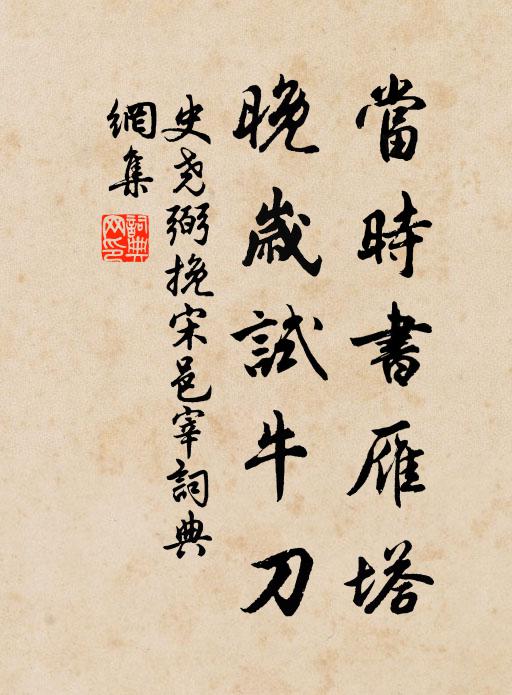 當時書雁塔
晚歲試牛刀
史尧弼挽宋邑宰詞典
網集
詞典
网印